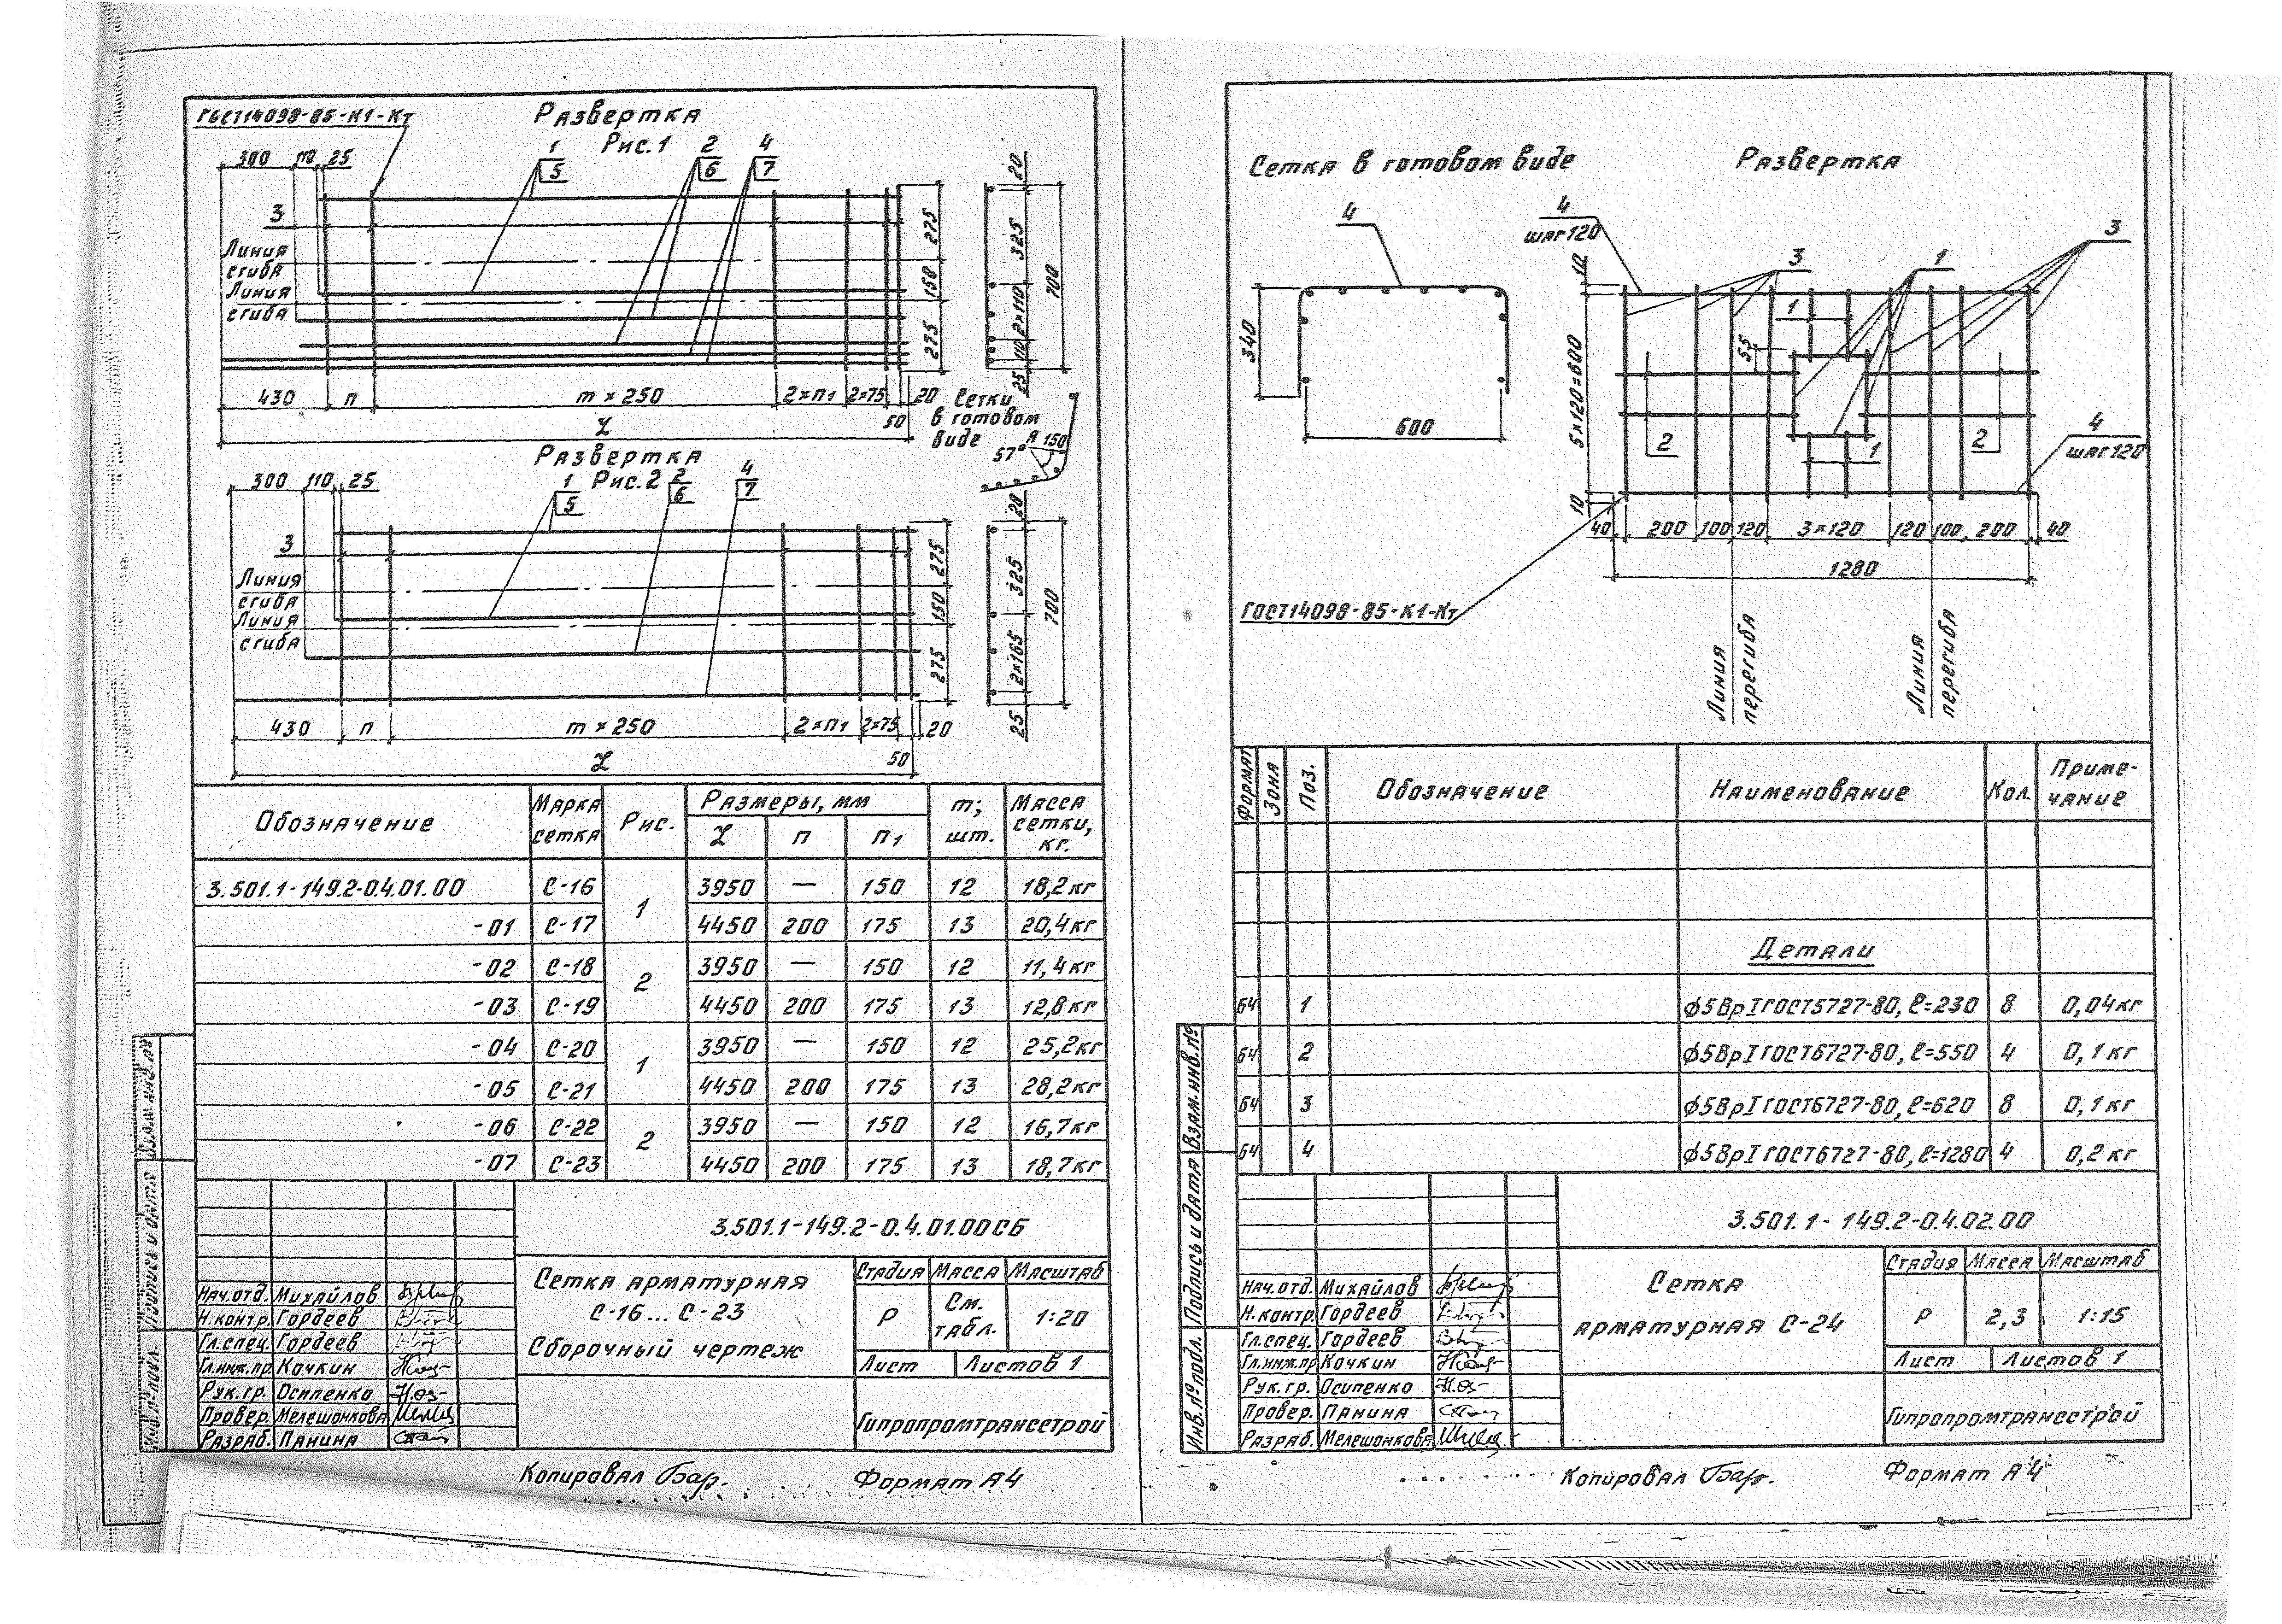 ГОСТ14098-85-К1-Кт
Развертка
Рис.1
300 110 25
1
5
2
6
4
7
3
Линия
сгиба
Линия
сгиба
275
150
275
20
325
2×110
110
25
700
430 п m×250 2×п1 2×75 20
50
L
Сетки
в готовом
виде
R 150
57°
Развертка
Рис.2
300 110 25
1
5
2
6
4
7
3
Линия
сгиба
Линия
сгиба
275
150
275
20
325
2×165
25
700
430 п m×250 2×п1 2×75 20
50
L
Обозначение Марка сетка Рис. Размеры, мм m; шт. Масса сетки, кг.
L п п1
3.501.1-149.2-0.4.01.00 С-16 1 3950 — 150 12 18,2кг
-01 С-17 4450 200 175 13 20,4кг
-02 С-18 2 3950 — 150 12 11,4кг
-03 С-19 4450 200 175 13 12,8кг
-04 С-20 1 3950 — 150 12 25,2кг
-05 С-21 4450 200 175 13 28,2кг
-06 С-22 2 3950 — 150 12 16,7кг
-07 С-23 4450 200 175 13 18,7кг
3.501.1-149.2-0.4.01.00СБ
Сетка арматурная
С-16... С-23
Сборочный чертеж
Стадия Масса Масштаб
Р См. табл. 1:20
Лист Листов 1
Гипропромтрансстрой
Нач.отд. Михайлов
Н.контр. Гордеев
Гл.спец. Гордеев
Гл.инж.пр. Кочкин
Рук.гр. Осипенко
Провер. Мелешонкова
Разраб. Панина
Подпись и дата
Инв.№подл.
Копировал Бар.
Формат А4
Сетка в готовом виде
Развертка
4
340
600
4
шаг 120
3
1
3
10
5×120=600
10
1
55
2
2
1
4
шаг 120
40 200 100 120 3×120 120 100 200 40
1280
ГОСТ14098-85-К1-Кт
Линия
перегиба
Линия
перегиба
Формат Зона Поз. Обозначение Наименование Кол. Приме-
чание
Детали
БЧ 1 ϕ5ВрI ГОСТ5727-80, ℓ=230 8 0,04кг
БЧ 2 ϕ5ВрI ГОСТ6727-80, ℓ=550 4 0,1кг
БЧ 3 ϕ5ВрI ГОСТ6727-80, ℓ=620 8 0,1кг
БЧ 4 ϕ5ВрI ГОСТ6727-80, ℓ=1280 4 0,2кг
3.501.1-149.2-0.4.02.00
Сетка
арматурная С-24
Стадия Масса Масштаб
Р 2,3 1:15
Лист Листов 1
Гипропромтрансстрой
Нач.отд. Михайлов
Н.контр. Гордеев
Гл.спец. Гордеев
Гл.инж.пр Кочкин
Рук.гр. Осипенко
Провер. Панина
Разраб. Мелешонкова
Взам.инв.№
Подпись и дата
Инв.№подл.
Копировал Бар.
Формат А4